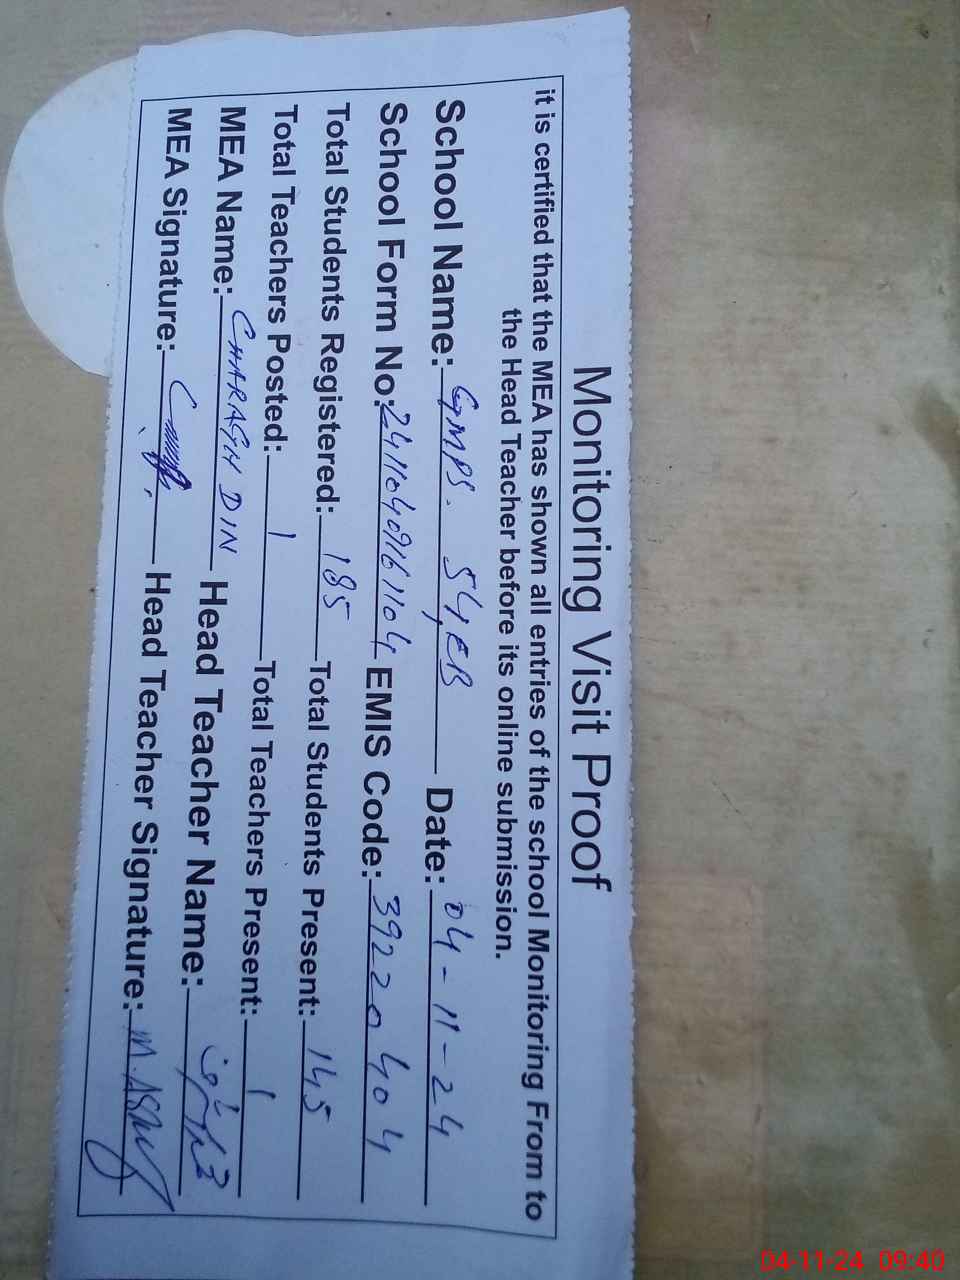 Monitoring Visit Proof
it is certified that the MEA has shown all entries of the school Monitoring From to
the Head Teacher before its online submission.
School Name: GMPS. 54/EB Date: 04-11-24
School Form No: 24110409161104 EMIS Code: 39220404
Total Students Registered: 185 Total Students Present: 145
Total Teachers Posted: 1 Total Teachers Present: 1
MEA Name: CHARAGH DIN Head Teacher Name:
MEA Signature: Head Teacher Signature:
04-11-24 09:40